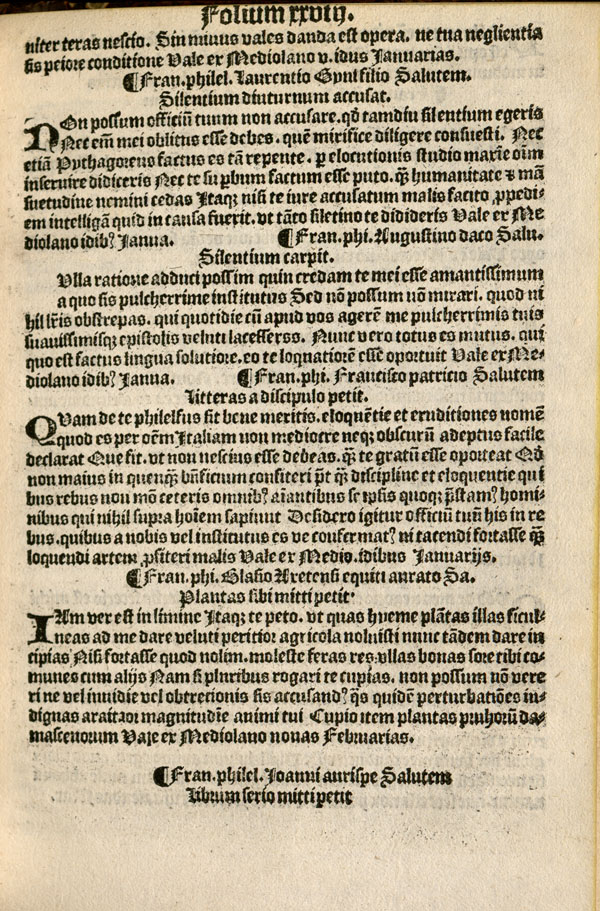 Folium xxviij.
niter teras nescio. Sin muius vales danda est opera. ne tua neglientia
sis peiore conditione Vale ex Mediolano v. idus Januarias.
¶Fran. philel. Laurentio Gpni filio Salutem.
Silentium diuturnum accusat.
NOn possum officiũ tuum non accusare. qð tamdiu silentium egeris
Nec em̃ mei oblitus esse debes. quẽ mirifice diligere consueſti. Nec
etiã Pythagoreus factus es tã repente. p elocutionis studio maxĩe oĩm
inseruire didiceris Nec te supbum factum esse puto. q̃ humanitate & mã
suetudine nemini cedas Itaqꝫ nisi te iure accusatum malis facito ꝓpedi-
em intelligã quid in causa fuerit. vt tãto siletino te didideris Vale ex Me
diolano idibꝰ Janua. ¶Fran. phi. Augustino daco Salu.
Silentium carpit.
Vlla ratione adduci possim quin credam te mei esse amantissimum
a quo sis pulcherrime institutus Sed nõ possum nõ mirari. quod ni
hil lr̃is obstrepas. qui quotidie cũ apud vos agerẽ me pulcherrimis tuis
suauissimisqꝫ epistolis veluti lacesseres. Nunc vero totus es mutus. qui
quo est factus lingua solutiore. eo te loqnatiorẽ esse oportuit Vale ex Me-
diolano idibꝰ Janua. ¶Fran. phi. Francisco patricio Salutem
Litteras a discipulo petit.
QVam de te philelfus sit bene meritis. eloquẽtie et eruditiones nomẽ
quod es per oẽm Italiam non mediocre neqꝫ obscurũ adeptus facile
declarat Que fit. vt non nescius esse debeas. q̃ te gratũ esse oporteat Qð
non maius in quenqꝫ bñficium confiteri pt̃ q̃ discipline et eloquentie qui
bus rebus non mõ ceteris omnibꝰ aĩantibus se ipsis quoqꝫ p̃stamꝰ homi-
nibus qui nihil supra hoĩem sapiunt Desidero igitur officiũ tuũ his in re
bus. quibus a nobis vel institutus es ve confermatꝰ. ni tacendi fortasse q̃
loquendi artem ꝓfiteri malis Vale ex Medio. idibus Januarijs.
¶Fran. phi. Glasio Aretensi equiti aurato Sa.
Plantas sibi mitti petit.
IAm ver est in limine Itaqꝫ te peto. vt quas hyeme plãtas illas sicul-
neas ad me dare veluti peritior agricola noluisti nunc tãdem dare in
cipias Nisi fortasse quod nolim. moleste feras res vllas bonas fore tibi co-
munes cum alijs Nam si pluribus rogari te cupias. non possum nõ vere
ri ne vel inuidie vel obtrecionis sis accusandꝰ q̃s quidẽ perturbatiões in-
dignas magnitudĩe animi tui Cupio item plantas pruhorũ da-
mascenorum Vale ex Mediolano nonas Februarias.
¶Fran. philel. Joanni aurispe Salutem
Librum serio mitti petit